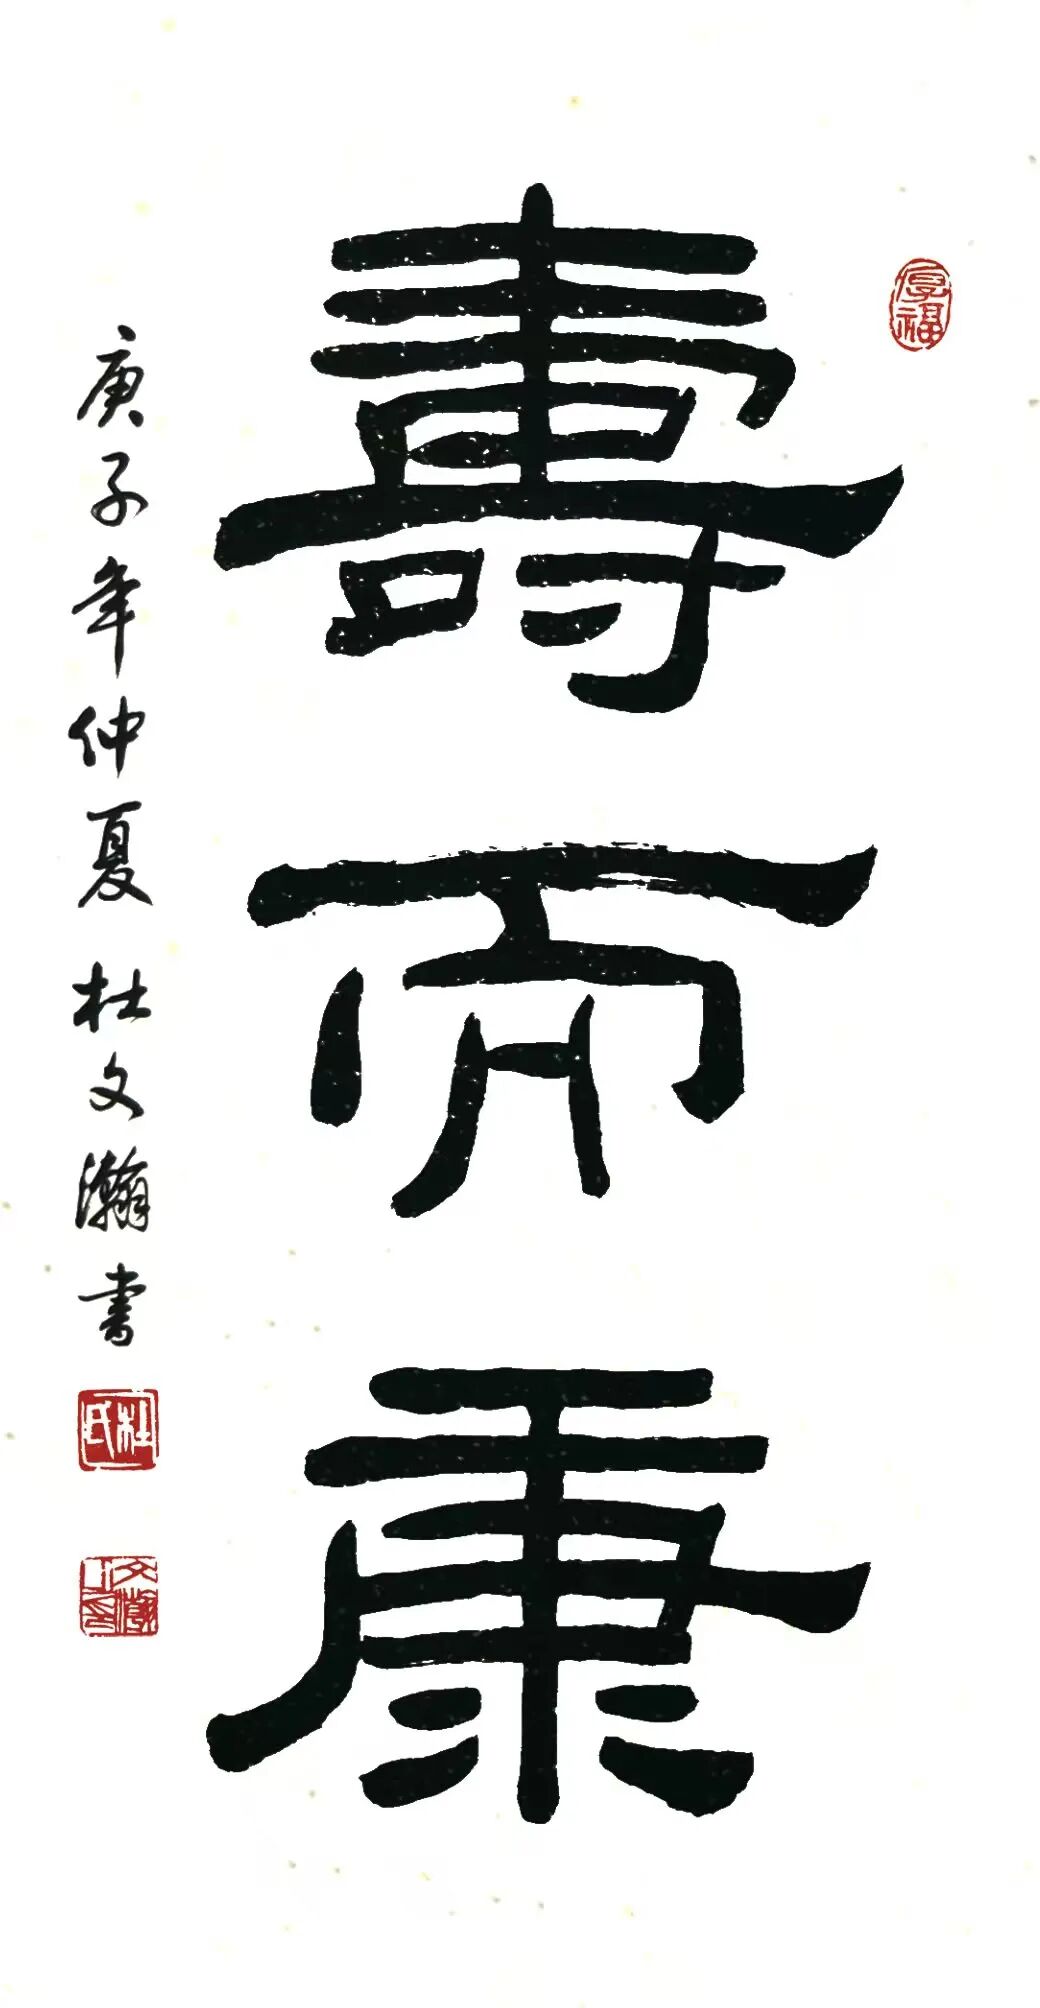 厚福
壽而康
庚子年仲夏 杜文瀚书
杜氏
文瀚之印